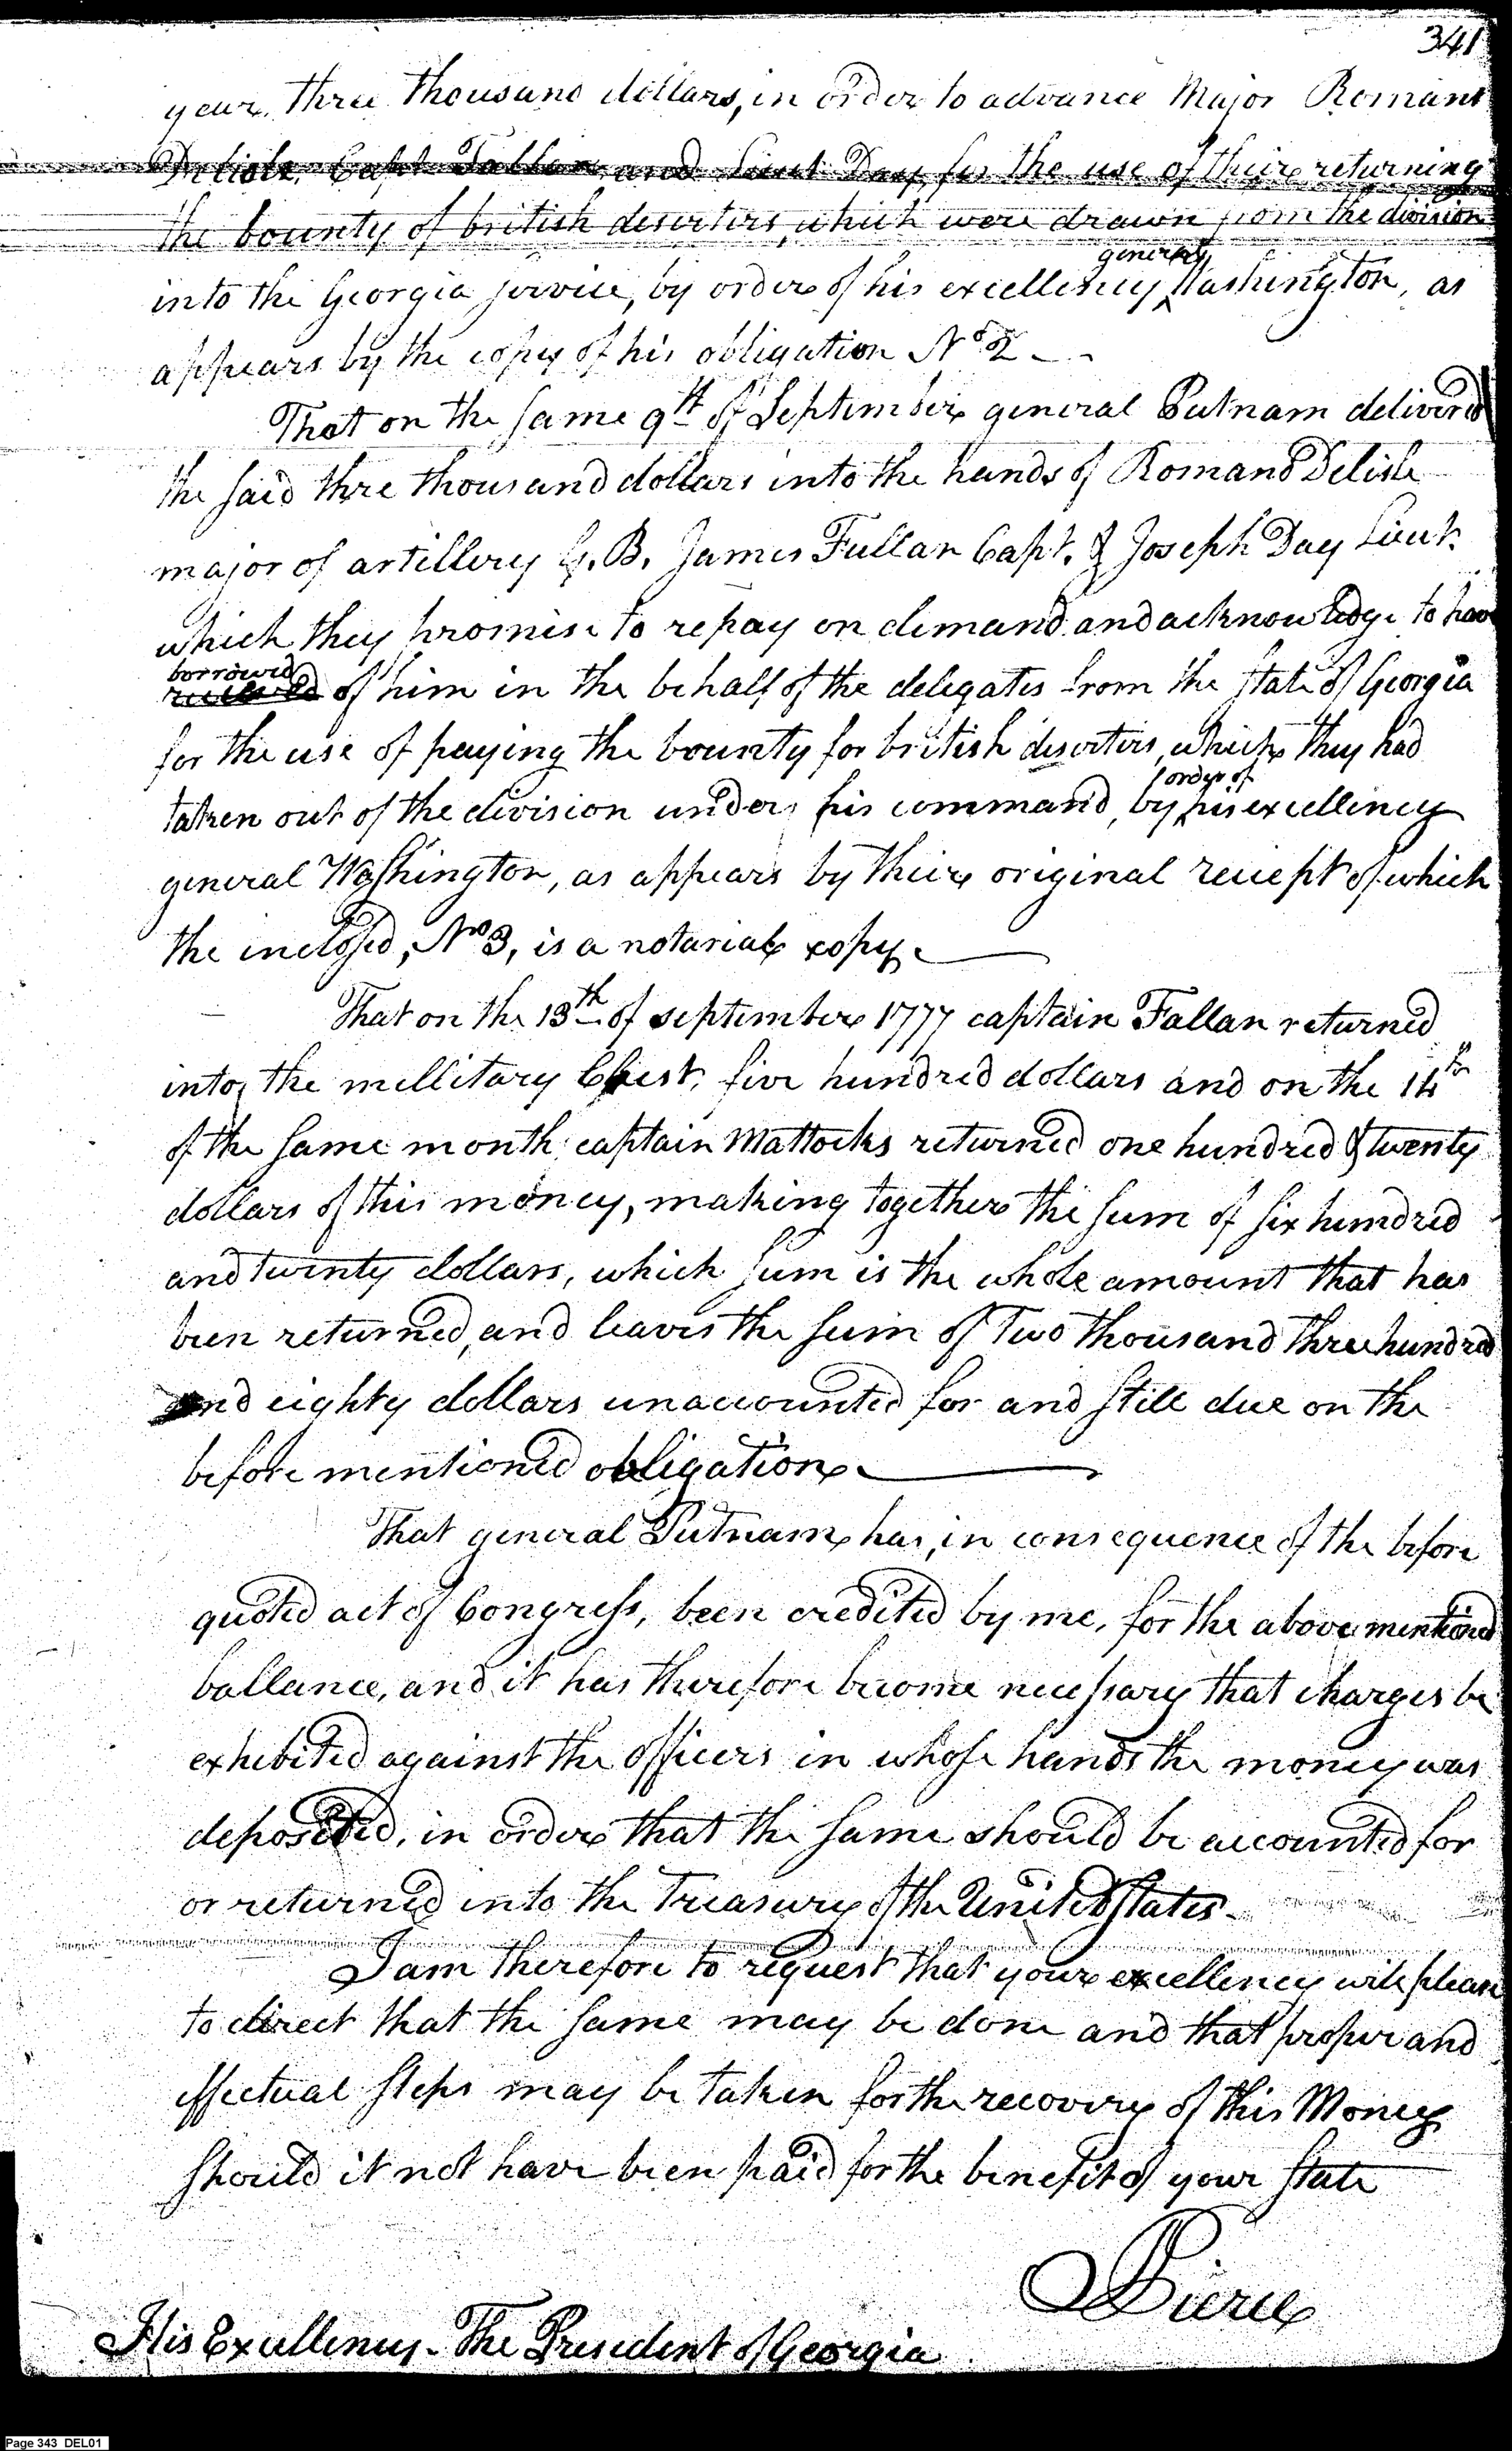 341
year, three thousand dollars, in order to advance Major Romand
Delisle, Capt. Fallan, and Lieut. Day, for the use of their returning
the bounty of british deserters, which were drawn from the division
general
into the Georgia service, by order of his excellency Washington, as
appears by the copy of his obligation No. 2 —
That on the same 9th of September general Putnam delivered
the said thre thousand dollars into the hands of Romand Delisle
major of artillery G. B. James Fullan Capt. & Joseph Day Lieut.
which they promise to repay on demand and acknowledge to have
borrowed
received of him in the behalf of the delegates from the state of Georgia
for the use of paying the bounty for british deserters, which they had
order of
taken out of the division under his command, by his excellency
general Washington, as appears by their original reciept of which
the inclosed, No 3, is a notarial copy. —
That on the 13th of september 1777 captain Fallan returned
into the millitary Chest, five hundred dollars and on the 14th
of the same month captain Mattocks returned one hundred & twenty
dollars of this money, making together the sum of six hundred
and twenty dollars, which sum is the whole amount that has
been returned, and leaves the sum of Two thousand three hundred
and eighty dollars unaccounted for and still due on the
before mentioned obligation. —
That general Putnam has, in consequence of the before
quoted act of Congress, been credited by me, for the above mentioned
ballance, and it has therefore become necessary that charges be
exhibited against the officers in whose hands the money was
deposited, in order that the same should be accounted for
or returned into the Treasury of the United States.
I am therefore to request that your excellency will please
to direct that the same may be done and that proper and
effectual steps may be taken for the recovery of this Money
should it not have been paid for the benefit of your state
Pierce
His Excellency - The President of Georgia
Page 343 DEL01